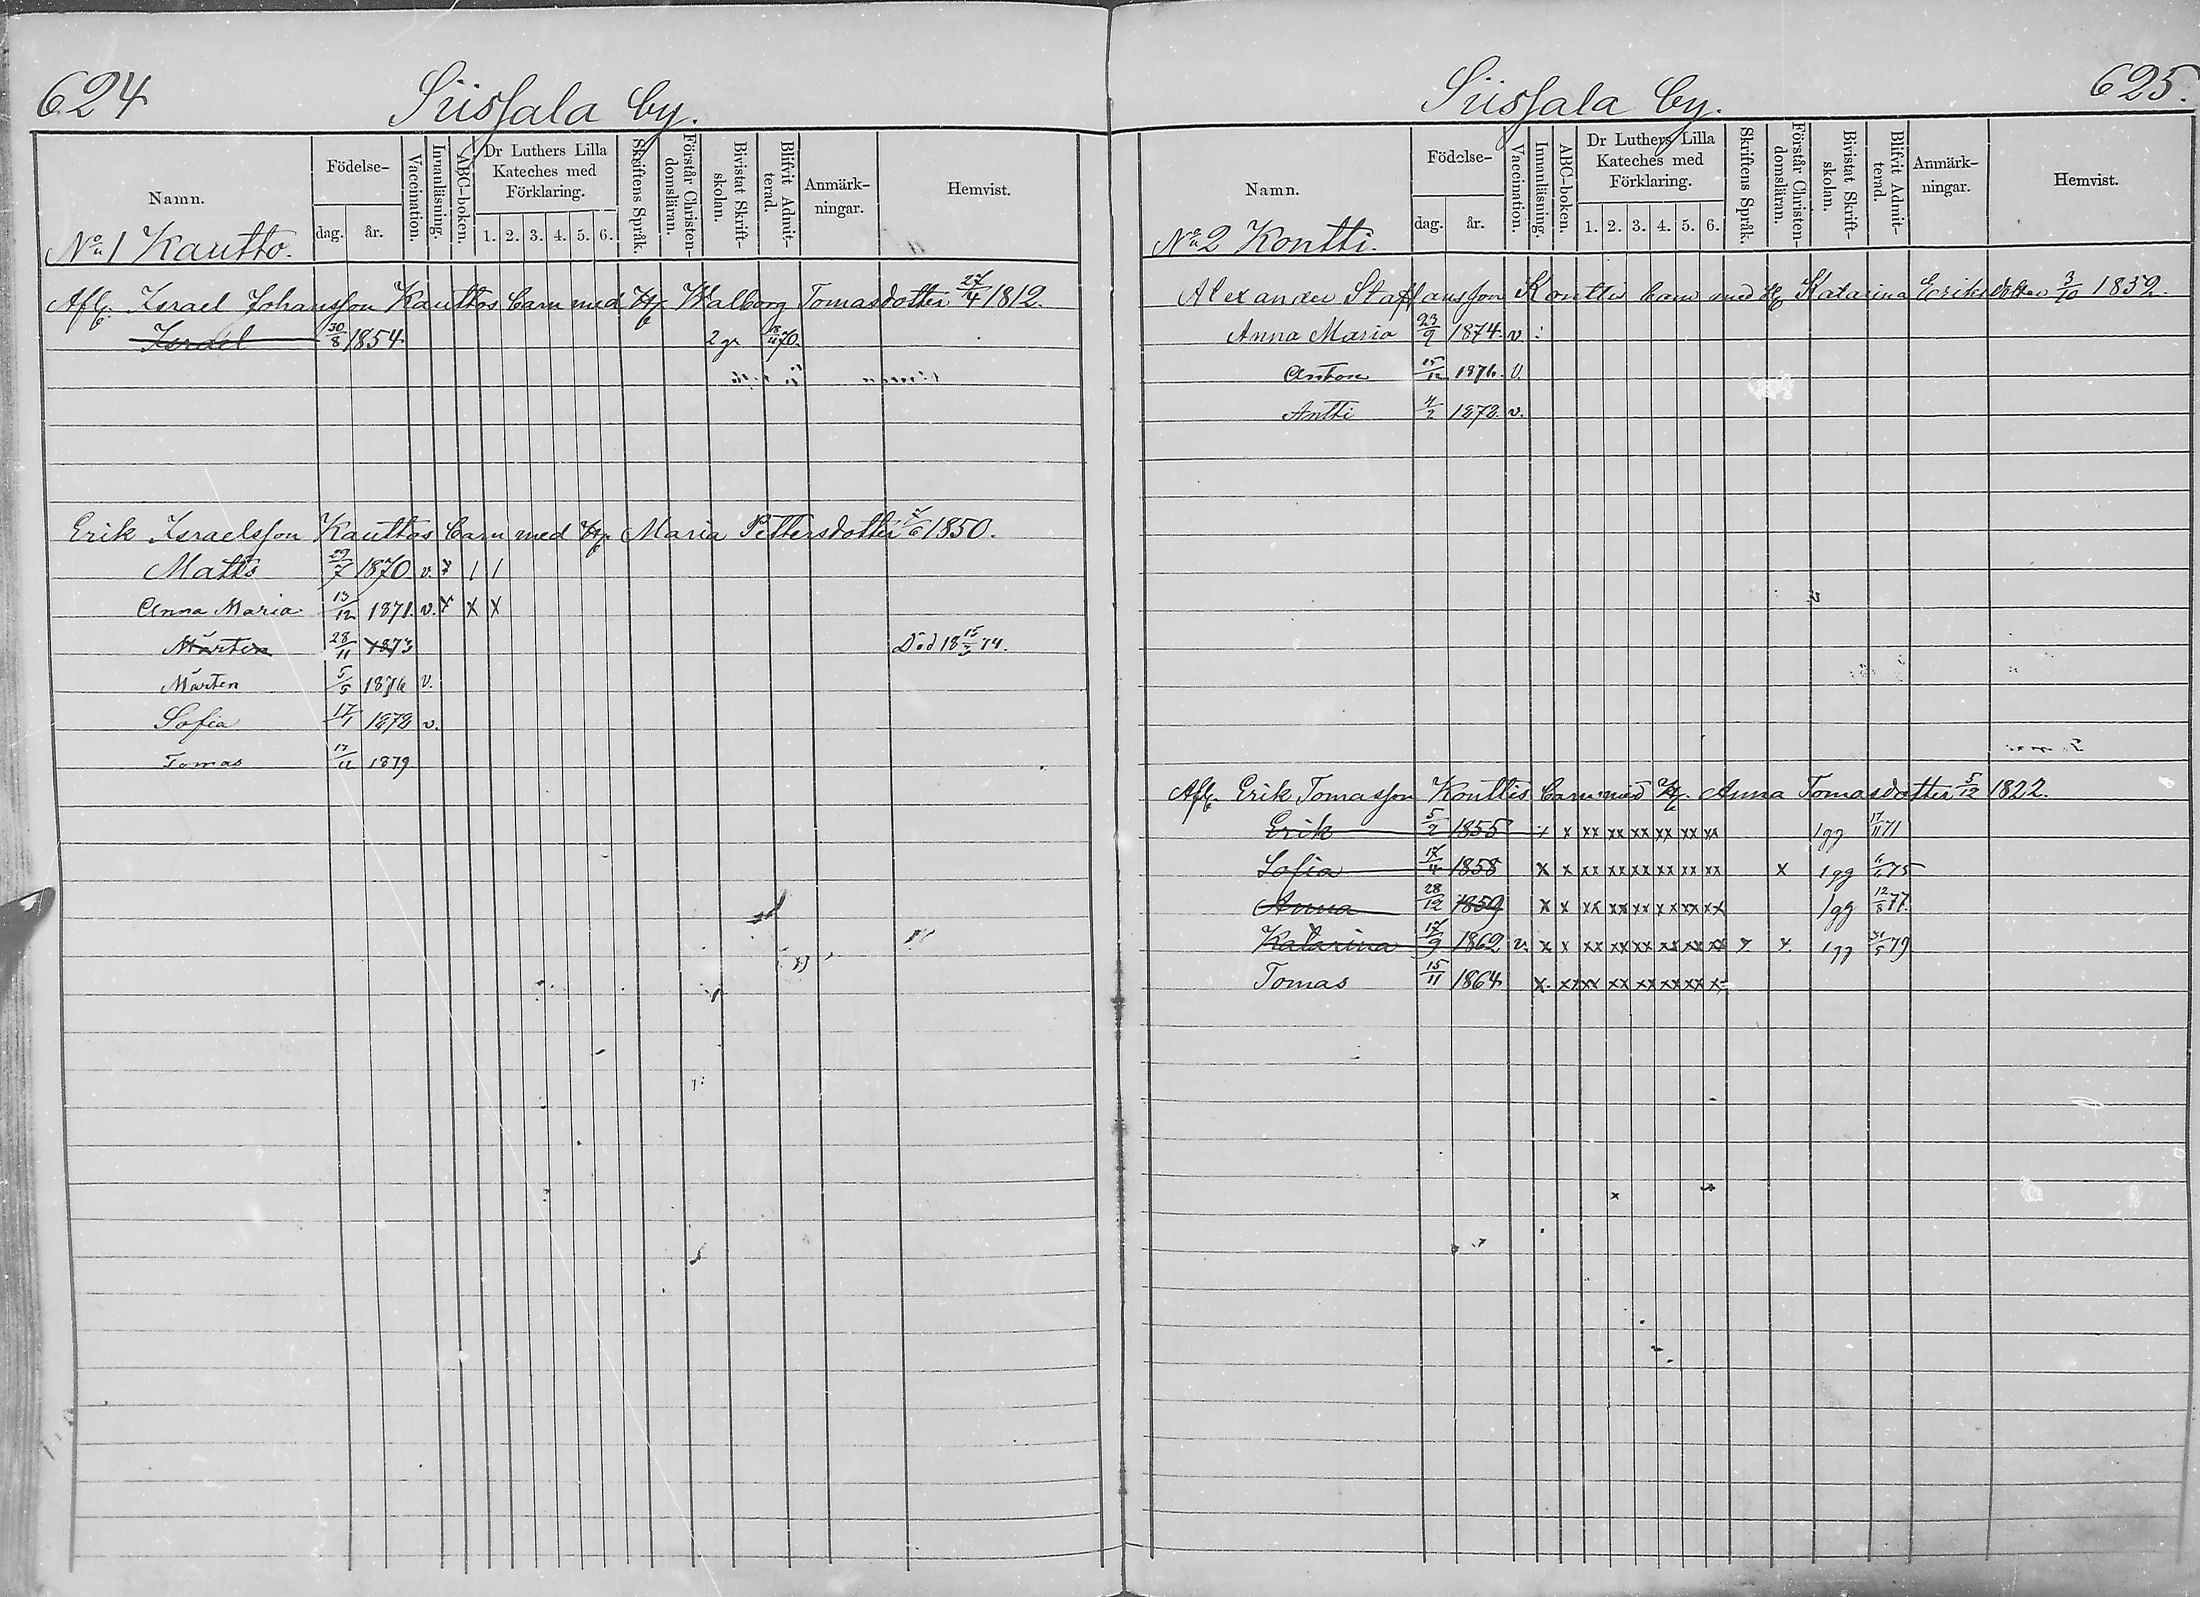 624
Siissala by.
Namn.
Födelse-
dag.
år.
Vaccination.
Innanläsning.
ABC-boken.
Dr Luthers Lilla Kateches med Förklaring.
1. 2. 3. 4. 5. 6.
Skriftens Språk.
Förstår Christendomsläran.
Bivistat Skriftskolan.
Blifvit Admitterad.
Anmärkningar.
Hemvist.
No 1 Kautto.
Afl. Israel Johansson Kauttos barn med H. Walborg Tomasdotter 27/4 1812.
Israel 30/8 1854. 2 gr 18/11 70.
Erik Israelsson Kauttos barn med H. Maria Pettersdotter 7/6 1850.
Matts 29/7 1870. v. x / /
Anna Maria 13/12 1871. v. x x x
Mårten 28/11 1873 Död 18 15/3 74.
Mårten 5/5 1876 v.
Sofia 17/1 1878 v.
Tomas 1879
625.
Siissala by.
Namn.
Födelse-
dag.
år.
Vaccination.
Innanläsning.
ABC-boken.
Dr Luthers Lilla Kateches med Förklaring.
1. 2. 3. 4. 5. 6.
Skriftens Språk.
Förstår Christendomsläran.
Bivistat Skriftskolan.
Blifvit Admitterad.
Anmärkningar.
Hemvist.
No 2 Kontti.
Alexander Staffansson Konttis barn med H. Katarina Eriksdotter 3/10 1832.
Anna Maria 23/9 1874. v
Anton 15/12 1876. v.
Antti 4/2 1878. v.
Afl. Erik Tomasson Konttis barn med H. Anna Tomasdotter 5/12 1822.
Erik 5/2 1855 x x xx xx xx xx xx xx 1gg 17/11 71
Sofia 17/4 1858 x x xx xx xx xx xx xx x 1gg 75
Anna 28/12 1859 x x xx xx xx xx xx xx 1gg 12/8 77.
Katarina 17/9 1862 v. x x xx xx xx xx xx xx x x. 1gg 31/5 79
Tomas 15/11 1864 x. xx xx xx xx xx xx xx